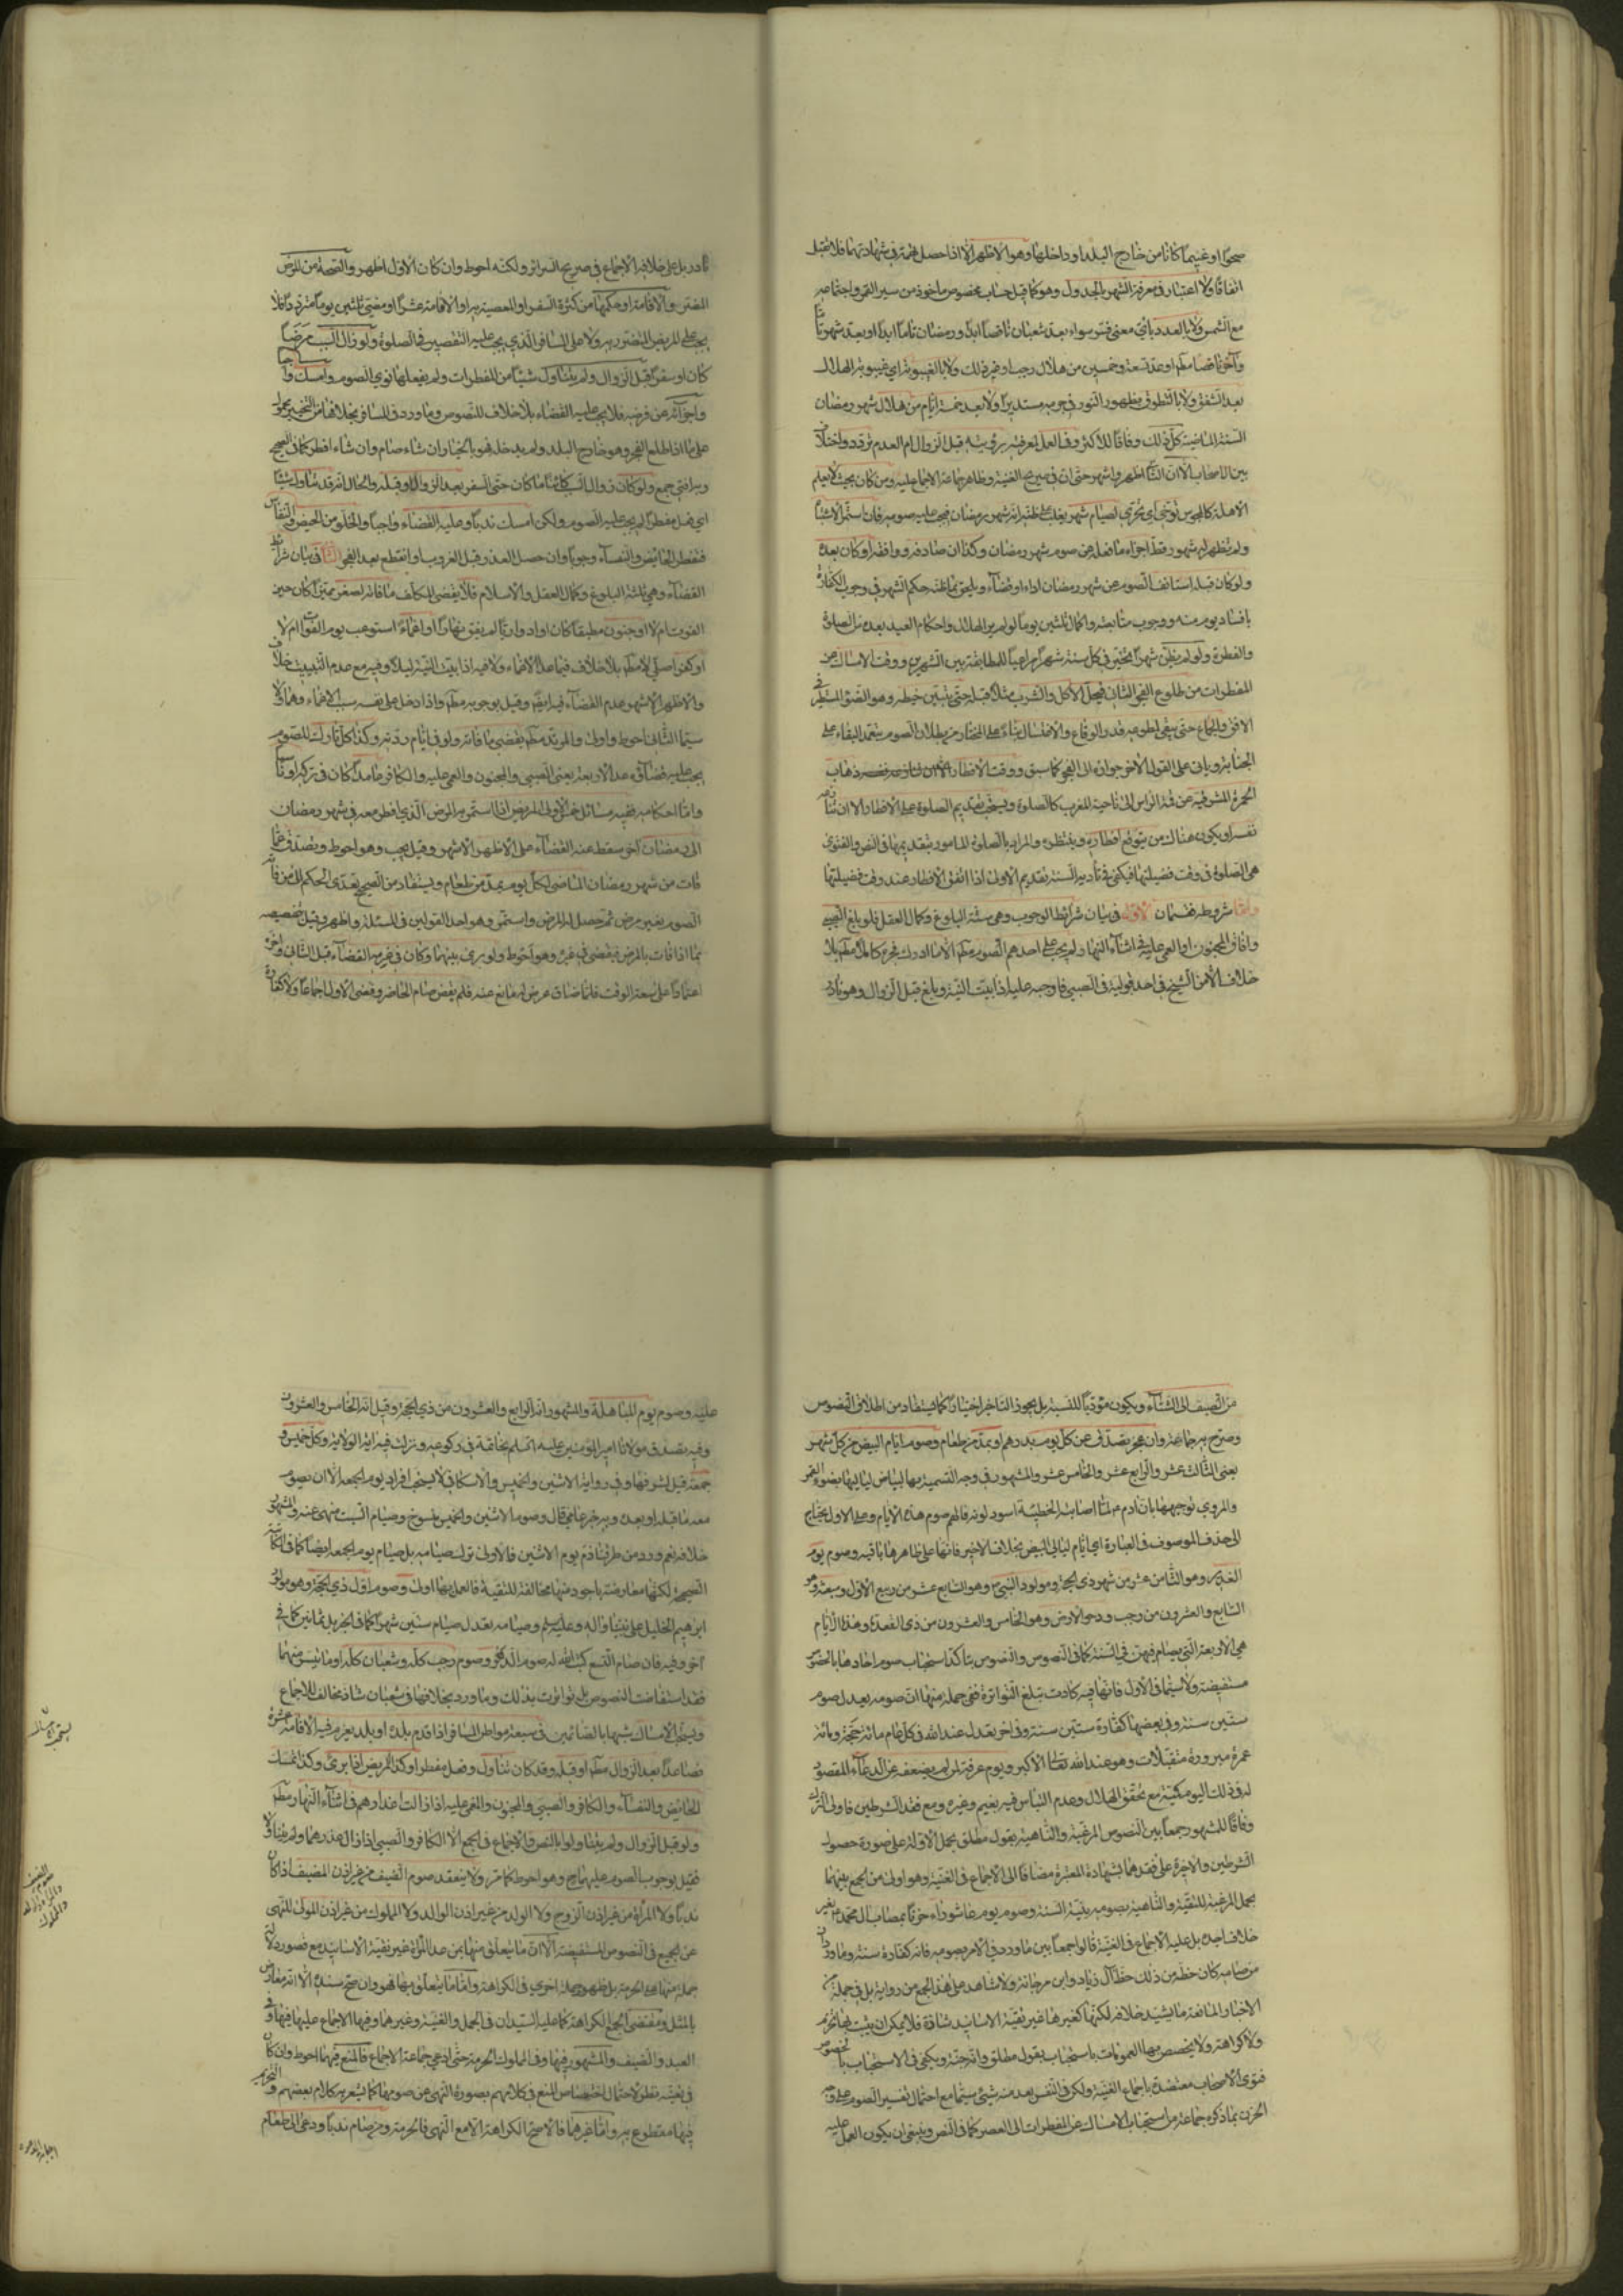 صحوا او غيما كانا من خارج البلد او داخلها وهو الاظهر الا اذا حصل تهمة في شهادتهما فلا تقبل
اتفاقا ولا اعتبار في معرفة الشهر بالجدول وهو كما قيل حساب مخصوص ماخوذ من سير القمر واجتماعه
مع الشمس ولا بالعدد باي معنى فسر سواء بعد شعبان ناقصا ابدا ورمضان تاما ابدا او بعد شهر تاما
وآخر ناقصا مطم او عد تسعة وخمسين من هلال رجب او غير ذلك ولا بالغيبوبة اي غيبوبة الهلال
بعد الشفق ولا بالتطوق بظهور النور في جرمه مستديرا ولا بعد خمسة ايام من هلال شهر رمضان
السنة الماضية كل ذلك وفاقا للاكثر وفي العمل بمعرفته برؤيته قبل الزوال ام العدم تردد واختلاف
بين الاصحاب الا ان الثاني اظهر واشهر حتى ان في صريح الغنية وظاهر جماعة الاجماع عليه ومن كان بحيث لا يعلم
الاهلة كالمحبوس توخى اي تحرى لصيام شهر يغلب على ظنه انه شهر رمضان فيجب عليه صومه فان استمر الاشتباه
ولم يظهر له شهر رمضان قط اجزاء ما فعله عن صوم شهر رمضان وكذا ان صادفه ووافقه او كان بعده
ولو كان قبله استانف الصوم عن شهر رمضان اداء او قضاء ويلحق بما ظنه حكم الشهر في وجوب الكفارة
بافساد يوم منه ووجوب متابعته واكمال ثلثين يوما لو لم ير الهلال واحكام العيد بعده من الصلوة
والفطرة ولو لم يظن شهرا تخير في كل سنة شهرا مراعيا للمطابقة بين الشهرين ووقت الامساك عن
المفطرات من طلوع الفجر الثاني فيحل الاكل والشرب مثلا قبله حتى يتبين خيطه وهو الضوء المستطير في
الافق والجماع حتى يبقى لطلوعه قدر الوقاع والاغتسال بناء على المختار من بطلان الصوم بتعمد البقاء على
الجنابة وياتي على القول الاخر جوازه الى الفجر كما سبق ووقت الافطار ذهاب
الحمرة المشرقية عن قمة الراس الى ناحية المغرب كالصلوة ويستحب تقديم الصلوة على الافطار الا ان تنازعه
نفسه او يكون هناك من يتوقع افطاره وينتظره والمراد بالصلوة المامور بتقديمها في النص والفتوى
هي الصلوة في وقت فضيلتها فيكفي في تأدية السنة تقديم الاولى اذا اتفق الافطار عند وقت فضيلتها
واما شروطه فقسمان الاول في بيان شرائط الوجوب وهي ستة البلوغ وكمال العقل فلو بلغ الصبي
وافاق المجنون او المغمى عليه في اثناء النهار لم يجب على احدهم الصوم مطم الا ما ادرك فجره كاملا مطم بلا
خلاف الا من الشيخ في احد قوليه في الصبي فاوجبه عليه اذا بيت النية وبلغ قبل الزوال وهو نادر
نادر بل على خلافه الاجماع في صريح السرائر ولكنه احوط وان كان الاول اظهر والصحة من المرض
المضر والاقامة او حكمها من كثرة السفر او المعصية به او الاقامة عشرا او مضي ثلثين يوما مترددا فلا
يجب على المريض المتضرر به ولا على المسافر الذي يجب عليه التقصير في الصلوة ولو زال السبب مرضا
كان او سفرا قبل الزوال ولم يتناول شيئا من المفطرات ولم يفعلها نوى الصوم وامسك واجبا
واجزأه عن فرضه فلا يجب عليه القضاء بلا خلاف للنصوص وما ورد في المسافر بخلافها من التخيير محمول
على ما اذا طلع الفجر وهو خارج البلد ولم يدخله فهو بالخيار ان شاء صام وان شاء افطر كما في الصحيح
وبه افتى جمع ولو كان زوال السبب كائنا ما كان حتى السفر بعد الزوال او قبله والحال انه قد تناول شيئا
اي فعل مفطرا لم يجب عليه الصوم ولكن امسك ندبا وعليه القضاء واجبا والخلو من الحيض والنفاس
فتفطر الحائض والنفساء وجوبا وان حصل العذر قبل الغروب او انقطع بعد الفجر الثاني في بيان شرائط
القضاء وهي ثلثة البلوغ وكمال العقل والاسلام فلا يقضي المكلف ما فاته لصغر مميزا كان حين
الفوت ام لا او جنون مطبقا كان او ادواريا لم يفق نهارا او اغماء استوعب يوم الفوات ام لا
او كفر اصلي لا مطم بلا خلاف فيما عدا الاغماء ولا فيه اذا بيت النية ليلا وفيه مع عدم التبييت خلاف
والاظهر الاشهر عدم القضاء فيه ايضا وقيل بوجوبه مطم واذا دخل على نفسه سبب الاغماء وهما ولا
سيما الثاني احوط واولى والمرتد مطم يقضي ما فاته ولو في ايام ردته وكذا كل تارك للصوم
يجب عليه قضاؤه عدا الاربعة يعني الصبي والمجنون والمغمى عليه والكافر عامدا كان في تركه او ناسيا
واما احكامه ففيه مسائل خمس الاولى المريض اذا استمر به المرض الذي افطر معه في شهر رمضان
الى رمضان آخر سقط عنه القضاء على الاظهر الاشهر وقيل يجب وهو احوط وتصدق عما
فات من شهر رمضان الماضي لكل يوم بمد من طعام ويستفاد من الصحيح تعدي الحكم الى من فاته
الصوم بغير مرض ثم حصل له المرض واستمر وهو احد القولين في المسئلة واظهر وقيل بتخصيصه
بما اذا فات بالمرض فيقضي في غيره وهو احوط ولو برئ بينهما وكان في عزمه القضاء قبل الثاني واخره
اعتمادا على سعة الوقت فلما ضاق عرض له مانع عنه فلم يقض صام الحاضر وقضى الاول اجماعا ولا كفارة
من الصيف الى الشتاء ويكون مؤديا للسنة بل يجوز التاخير اختيارا كما يستفاد من اطلاق النصوص
وصرح به جماعة وان عجز تصدق عن كل يوم بدرهم او بمد من طعام وصوم ايام البيض من كل شهر
يعني الثالث عشر والرابع عشر والخامس عشر والمشهور في وجه التسمية بها لبياض لياليها بضوء القمر
والمروي توجيهها بان آدم ع لما اصابته الخطيئة اسود لونه فالهم صوم هذه الايام وعلى الاول يحتاج
الى حذف الموصوف في العبارة اي ايام ليالي البيض بخلاف الاخير فانها على ظاهرها باقية وصوم يوم
الغدير وهو الثامن عشر من شهر ذي الحجة ومولود النبي ص وهو السابع عشر من ربيع الاول ومبعثه وهو
السابع والعشرون من رجب ودحو الارض وهو الخامس والعشرون من ذي القعدة وهذه الايام
هي الاربعة التي يصام فيهن في السنة كما في النصوص والنصوص بتأكد استحباب صوم احادها بالخصوص
مستفيضة ولا سيما في الاول فانها فيه كادت تبلغ التواتر ففي جملة منها ان صومه يعدل صوم
ستين سنة وفي بعضها كفارة ستين سنة وفي اخر يعدل عند الله في كل عام مائة حجة ومائة
عمرة مبرورة متقبلات وهو عند الله تعالى الاكبر ويوم عرفة لمن لم يضعفه عن الدعاء المقصود
له في ذلك اليوم كميته مع تحقق الهلال وعدم التباس فيه بغيم وغيره ومع فقد الشرطين فاولى الترك
وفاقا للمشهور جمعا بين النصوص المرغبة والناهية بقول مطلق بحمل الاولة على صورة حصول
الشرطين والاخيرة على فقدهما لشهادة المعتبرة مضافا الى الاجماع في الغنية وهو اولى من الجمع بينهما
بحمل المرغبة للتقية والناهية بصومه بنية السنة وصوم يوم عاشوراء حزنا بمصاب آل محمد ع بغير
خلاف اجده بل عليه الاجماع في الغنية قالوا جمعا بين ما ورد في الامر بصومه فانه كفارة سنة وما ورد ان
من صامه كان حظه من ذلك حظ آل زياد وابن مرجانة ولا شاهد على هذا الجمع من رواية بل في جملة من
الاخبار المانعة ما يشيد خلافه لكنها كغيرها غير نقية الاسانيد شاذة فلا يمكن ان يثبت بها تحريم
ولا كراهة ولا يخصص بها العمومات باستحباب بقول مطلق وانه جنة ويكفي في الاستحباب بالخصوص
فتوى الاصحاب معتضدة باجماع الغنية ولكن في النفس بعد منه شيئ سيما مع احتمال تفسير الصوم على وجه
الحزن بما ذكره جماعة من استحباب الامساك عن المفطرات الى العصر كما في النص وينبغي ان يكون العمل عليه
عليه وصوم يوم المباهلة والمشهور انه الرابع والعشرون من ذي الحجة وقيل انه الخامس والعشرون
وفيه تصدق مولانا امير المؤمنين عليه السلم بخاتمه في ركوعه ونزلت فيه اية الولاية وكل خميس و
جمعة قيل لشرفهما وفي رواية الاثنين والخميس والاسكافي لا يستحب افراد يوم الجمعة الا ان يصوم
معه ما قبله او بعده وبه خبر عامي قال وصوم الاثنين والخميس منسوخ وصيام السبت منهى عنه والمشهور
خلافه نعم ورد من طرقنا ذم يوم الاثنين فالاولى ترك صيامه بل صيام يوم الجمعة ايضا كما في المكاتبة
الصحيحة لكنها معارضة باجود منها مخالفة للتقية فالعمل بها اولى وصوم اول ذي الحجة وهو مولد
ابرهيم الخليل على نبينا وآله وعليه السلم وصيامه يعدل صيام ستين شهرا كما في الخبر بل ثمانين كما في
آخر وفيه فان صام التسع كتب الله له صوم الدهر وصوم رجب كله وشعبان كله او ما تيسر منهما
فقد استفاضت النصوص بل تواترت بذلك وما ورد بخلافها في شعبان شاذ مخالف للاجماع
ويستحب الامساك تشبها بالصائمين في سبعة مواطن المسافر اذا قدم بلده او بلدا يعزم فيه الاقامة عشرة
فصاعدا بعد الزوال مطم او قبله وقد كان تناول وفعل مفطرا وكذا المريض اذا برئ وكذا تمسك
الحائض والنفساء والكافر والصبي والمجنون والمغمى عليه اذا زالت اعذارهم في اثناء النهار مطم
ولو قبل الزوال ولم يتناولوا بالنص والاجماع في الجميع الا الكافر والصبي اذا زال عذرهما ولم يتناولا
فقيل بوجوب الصوم عليهما ح وهو احوط كما مر ولا ينعقد صوم الضيف من غير اذن المضيف اذا كان
ندبا ولا المرأة من غير اذن الزوج ولا الولد من غير اذن الوالد ولا المملوك من غير اذن المولى للنهي
عن الجميع في النصوص المستفيضة الا ان ما يتعلق منها بمن عدا المرأة غير نقية الاسانيد مع قصور دلالة
جملة منها على الحرمة بل ظهور جملة اخرى في الكراهة واما ما يتعلق بها فهو وان صح سنده الا انه معارض
بالمثل ومقتضى الجمع الكراهة كما عليه السيدان في الجمل والغنية وغيرهما وفيها الاجماع عليها فيها وفي
العبد والضيف والمشهور فيها وفي المملوك الحرمة حتى ادعى جماعة الاجماع فالمنع فيهما احوط وان كان
في تعينه نظر لاحتمال اختصاص المنع في كلامهم بصورة النهي عن صومها كما يشعر به كلام بعضهم والتحريم
فيها مقطوع به واما غيرهما فالاصح الكراهة الا مع النهي فالحرمة ومن صام ندبا ودعي الى طعام
صوم الضيف
والمملوك